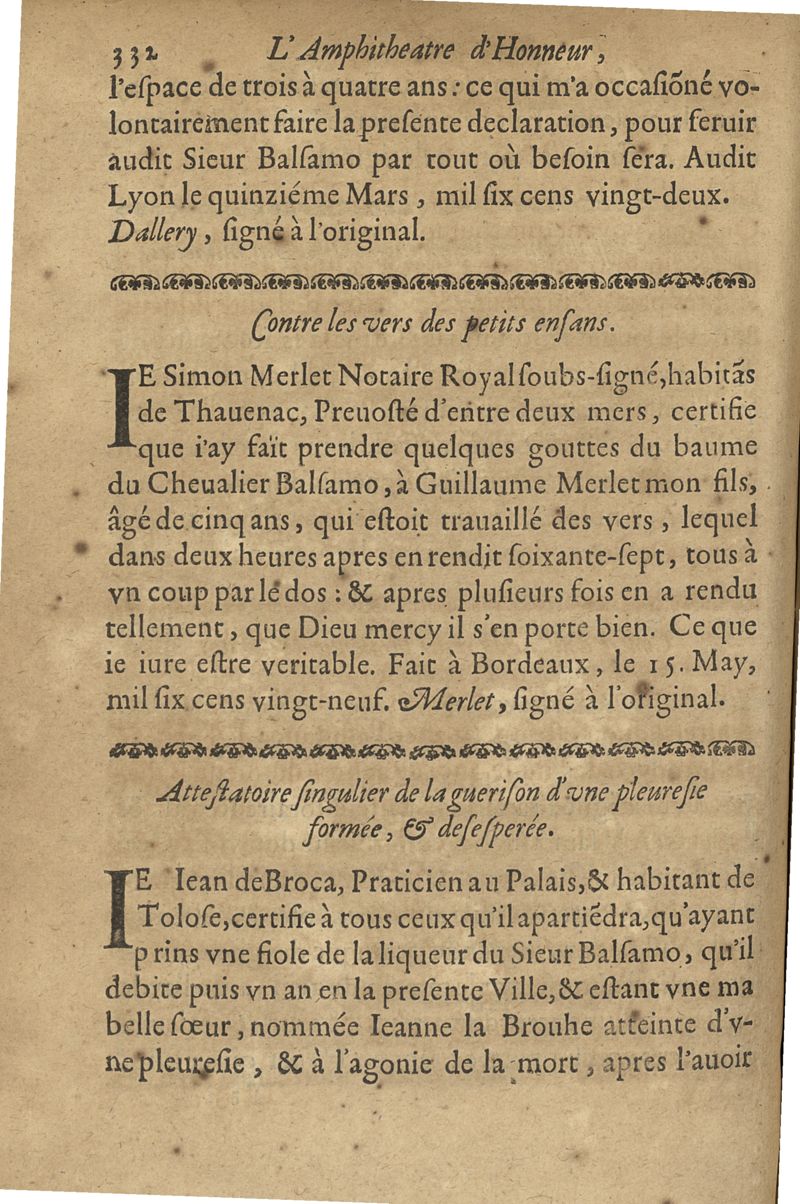 332 L'Amphitheatre d'Honneur,
l'eſpace de trois à quatre ans : ce qui m'a occaſiõné vo-
lontairement faire la preſente declaration, pour ſeruir
audit Sieur Balſamo par tout où beſoin ſera. Audit
Lyon le quinziéme Mars, mil ſix cens vingt-deux.
Dallery, ſigné à l'original.
Contre les vers des petits enfans.
IE Simon Merlet Notaire Royal ſoubs-ſigné, habitãs
de Thauenac, Preuoſté d'entre deux mers, certifie
que i'ay faït prendre quelques gouttes du baume
du Cheualier Balſamo, à Guillaume Merlet mon fils,
âgé de cinq ans, qui eſtoit trauaillé des vers, lequel
dans deux heures apres en rendit ſoixante-ſept, tous à
vn coup par le dos : & apres pluſieurs fois en a rendu
tellement, que Dieu mercy il s'en porte bien. Ce que
ie iure eſtre veritable. Fait à Bordeaux, le 15. May,
mil ſix cens vingt-neuf. Merlet, ſigné à l'original.
Atteſtatoire ſingulier de la gueriſon d'vne pleureſie
formée, & deſeſperée.
IE Iean de Broca, Praticien au Palais, & habitant de
Toloſe, certifie à tous ceux qu'il apartiẽdra, qu'ayant
prins vne fiole de la liqueur du Sieur Balſamo, qu'il
debite puis vn an en la preſente Ville, & eſtant vne ma
belle ſœur, nommée Ieanne la Brouhe atteinte d'v-
ne pleureſie, & à l'agonie de la mort, apres l'auoir